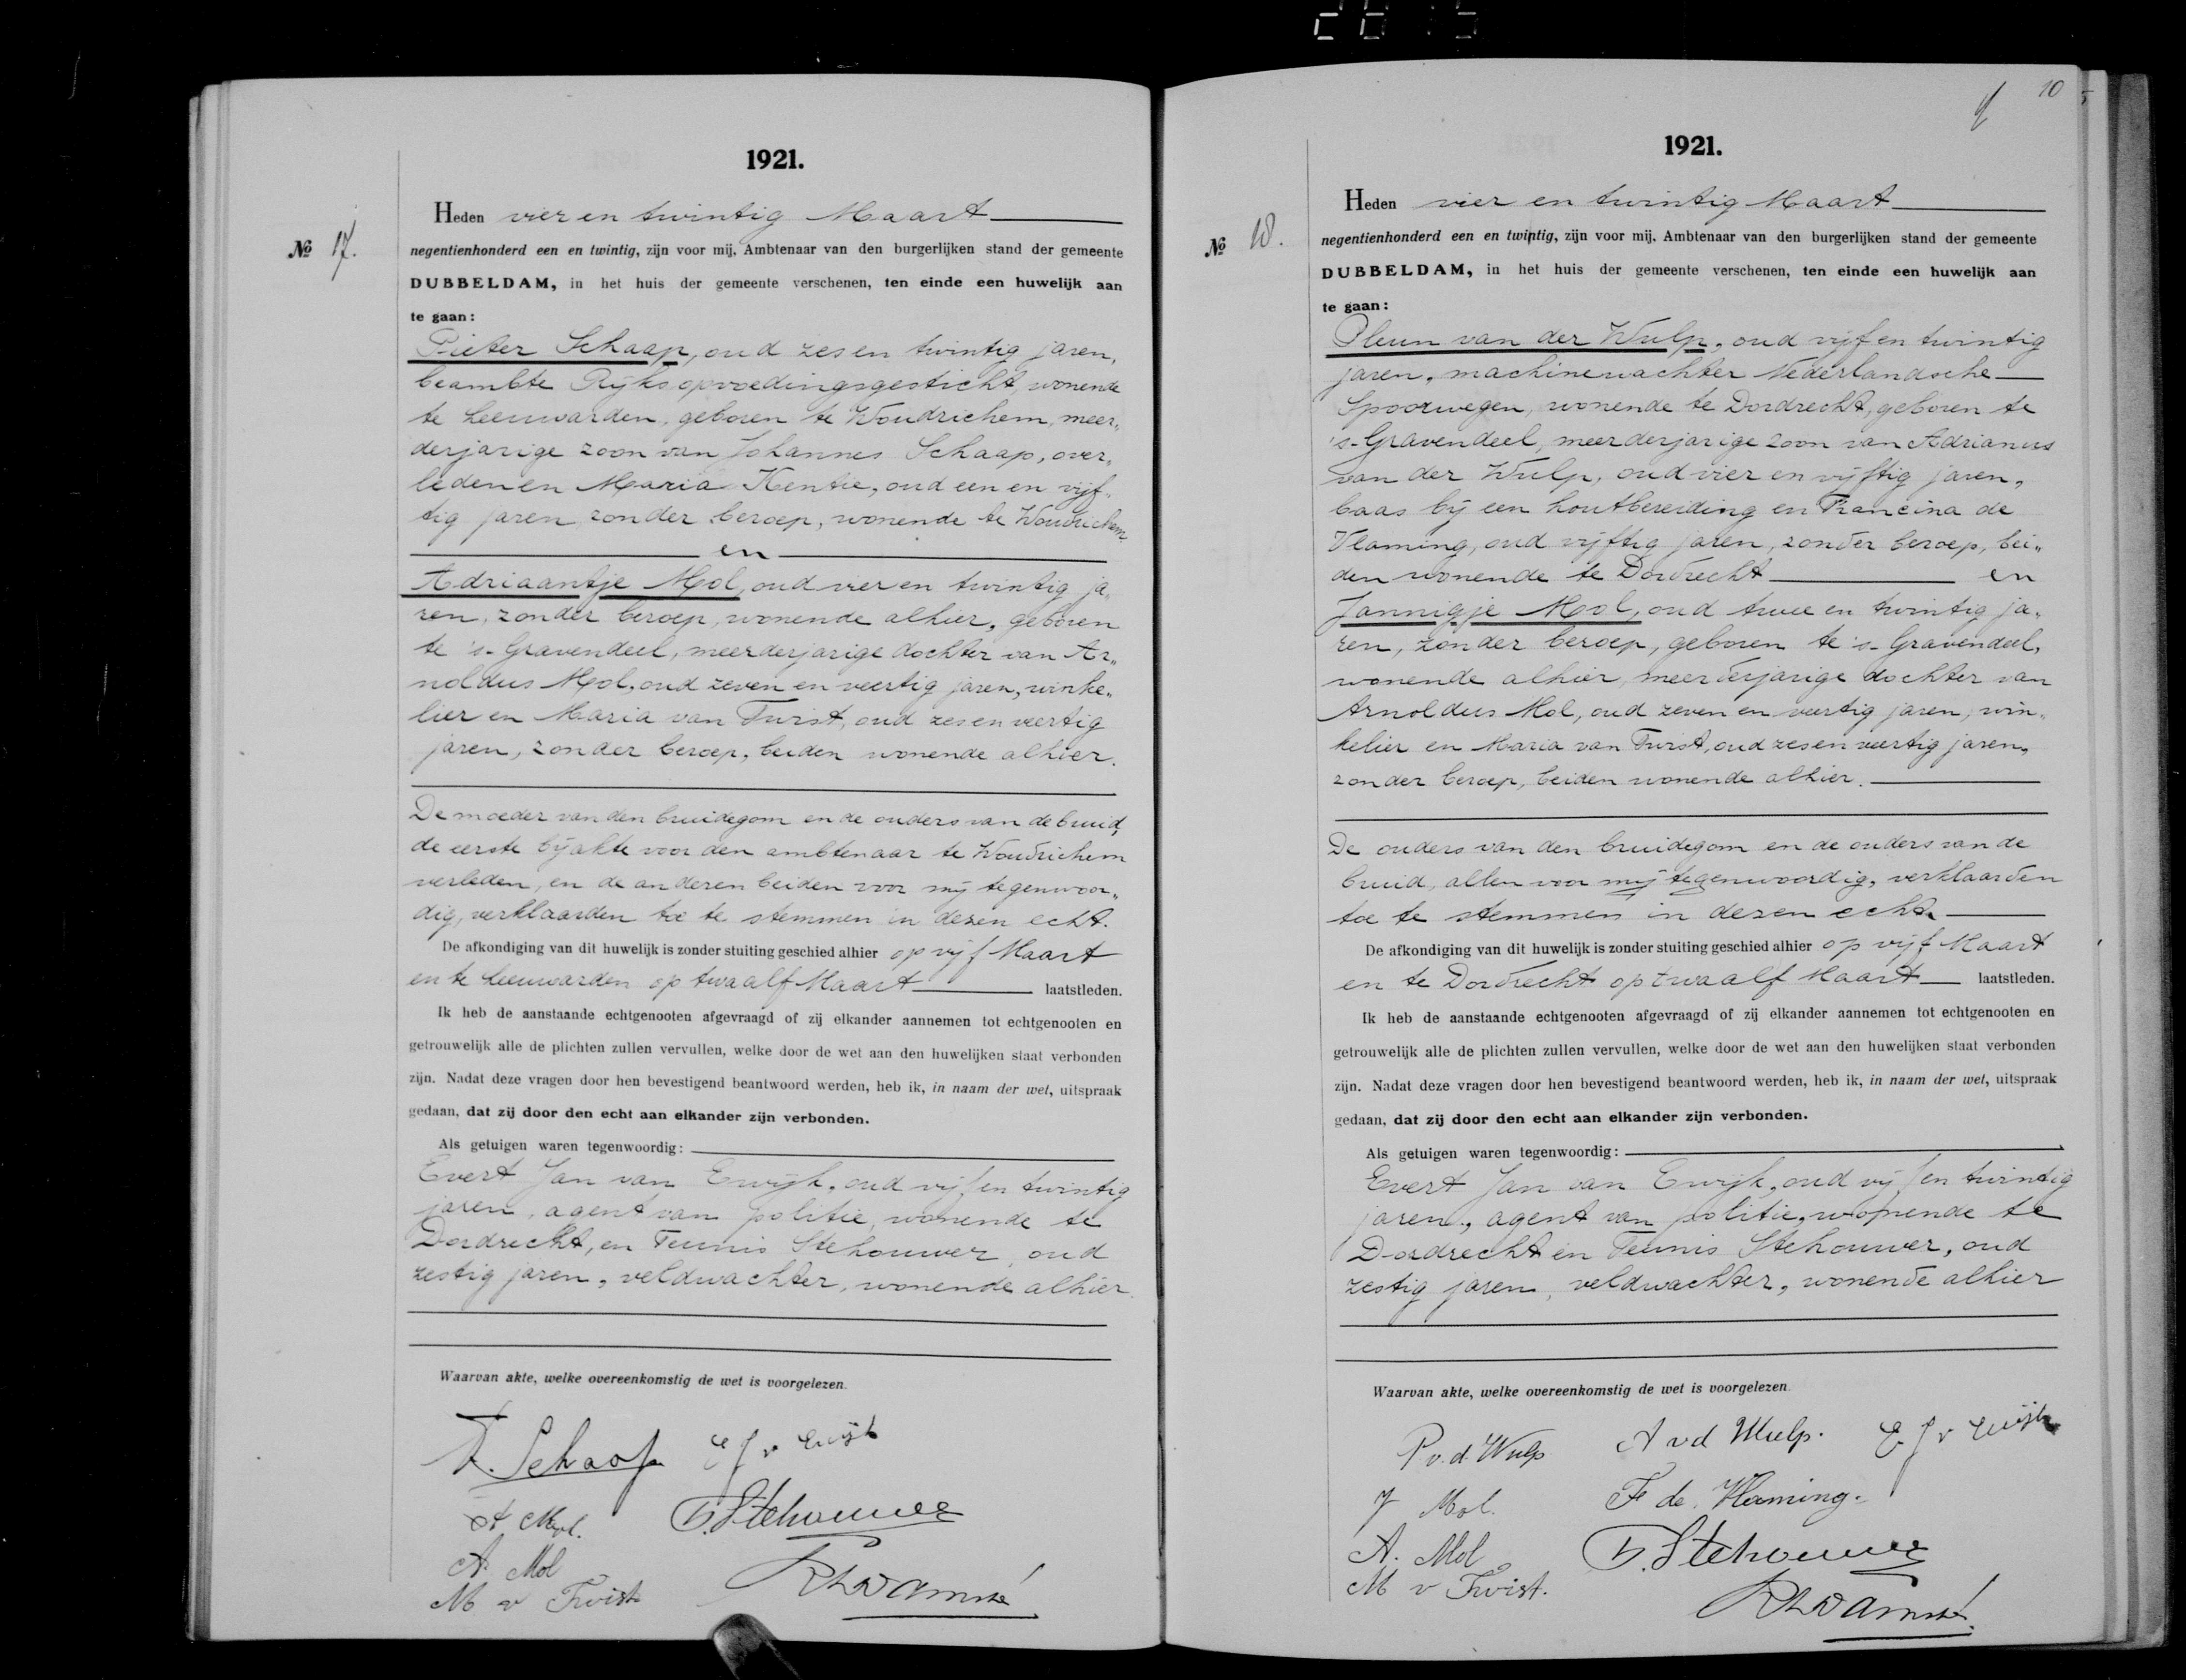 1921.
Heden vier en twintig Maart
№ 17.
negentienhonderd een en twintig, zijn voor mij, Ambtenaar van den burgerlijken stand der gemeente
DUBBELDAM, in het huis der gemeente verschenen, ten einde een huwelijk aan
te gaan:
Pieter Schaap, oud zes en twintig jaren,
beambte Rijksopvoedingsgesticht, wonende
te Leeuwarden, geboren te Woudrichem, meer„
derjarige zoon van Johannes Schaap, over„
leden en Maria Kentie, oud een en vijf„
tig jaren zonder beroep, wonende te Woudrichem.
en
Adriaantje Mol, oud vier en twintig ja„
ren, zonder beroep, wonende alhier, geboren
te 's-Gravendeel, meerderjarige dochter van Ar„
noldus Mol, oud zeven en veertig jaren, winke„
lier en Maria van Twist, oud zes en veertig
jaren, zonder beroep, beiden wonende alhier.
De moeder van den bruidegom en de ouders van de bruid,
de eerste bij akte voor den ambtenaar te Woudrichem
verleden, en de anderen beiden voor mij tegenwoor„
dig, verklaarden toe te stemmen in dezen echt.
De afkondiging van dit huwelijk is zonder stuiting geschied alhier op vijf Maart
en te Leeuwarden op twaalf Maart laatstleden.
Ik heb de aanstaande echtgenooten afgevraagd of zij elkander aannemen tot echtgenooten en
getrouwelijk alle de plichten zullen vervullen, welke door de wet aan den huwelijken staat verbonden
zijn. Nadat deze vragen door hen bevestigend beantwoord werden, heb ik, in naam der wet, uitspraak
gedaan, dat zij door den echt aan elkander zijn verbonden.
Als getuigen waren tegenwoordig:
Evert Jan van Ewijk, oud vijf en twintig
jaren, agent van politie, wonende te
Dordrecht, en Teunis Stehouwer, oud
zestig jaren, veldwachter, wonende alhier.
Waarvan akte, welke overeenkomstig de wet is voorgelezen.
P. Schaap E J v Ewijk
A Mol. T. Stehouwer
A. Mol
M v Twist
10
1921.
Heden vier en twintig Maart
№ 18.
negentienhonderd een en twintig, zijn voor mij, Ambtenaar van den burgerlijken stand der gemeente
DUBBELDAM, in het huis der gemeente verschenen, ten einde een huwelijk aan
te gaan:
Pleun van der Wulp, oud vijf en twintig
jaren, machinewachter Nederlandsche
Spoorwegen, wonende te Dordrecht, geboren te
's-Gravendeel, meerderjarige zoon van Adrianus
van der Wulp, oud vier en vijftig jaren,
baas bij een houtbereiding en Francina de
Vlaming, oud vijftig jaren, zonder beroep, bei„
den wonende te Dordrecht en
Jannigje Mol, oud twee en twintig ja„
ren, zonder beroep, geboren te 's-Gravendeel,
wonende alhier, meerderjarige dochter van
Arnoldus Mol, oud zeven en veertig jaren, win„
kelier en Maria van Twist, oud zes en veertig jaren,
zonder beroep, beiden wonende alhier.
De ouders van den bruidegom en de ouders van de
bruid, allen voor mij tegenwoordig, verklaarden
toe te stemmen in dezen echt.
De afkondiging van dit huwelijk is zonder stuiting geschied alhier op vijf Maart
en te Dordrecht op twaalf Maart laatstleden.
Ik heb de aanstaande echtgenooten afgevraagd of zij elkander aannemen tot echtgenooten en
getrouwelijk alle de plichten zullen vervullen, welke door de wet aan den huwelijken staat verbonden
zijn. Nadat deze vragen door hen bevestigend beantwoord werden, heb ik, in naam der wet, uitspraak
gedaan, dat zij door den echt aan elkander zijn verbonden.
Als getuigen waren tegenwoordig:
Evert Jan van Ewijk, oud vijf en twintig
jaren, agent van politie, wonende te
Dordrecht en Teunis Stehouwer, oud
zestig jaren, veldwachter, wonende alhier
Waarvan akte, welke overeenkomstig de wet is voorgelezen.
P v. d. Wulp A v d Wulp. E. J v Ewijk
J Mol. F de Vlaming.
A. Mol T. Stehouwer
M v Twist.